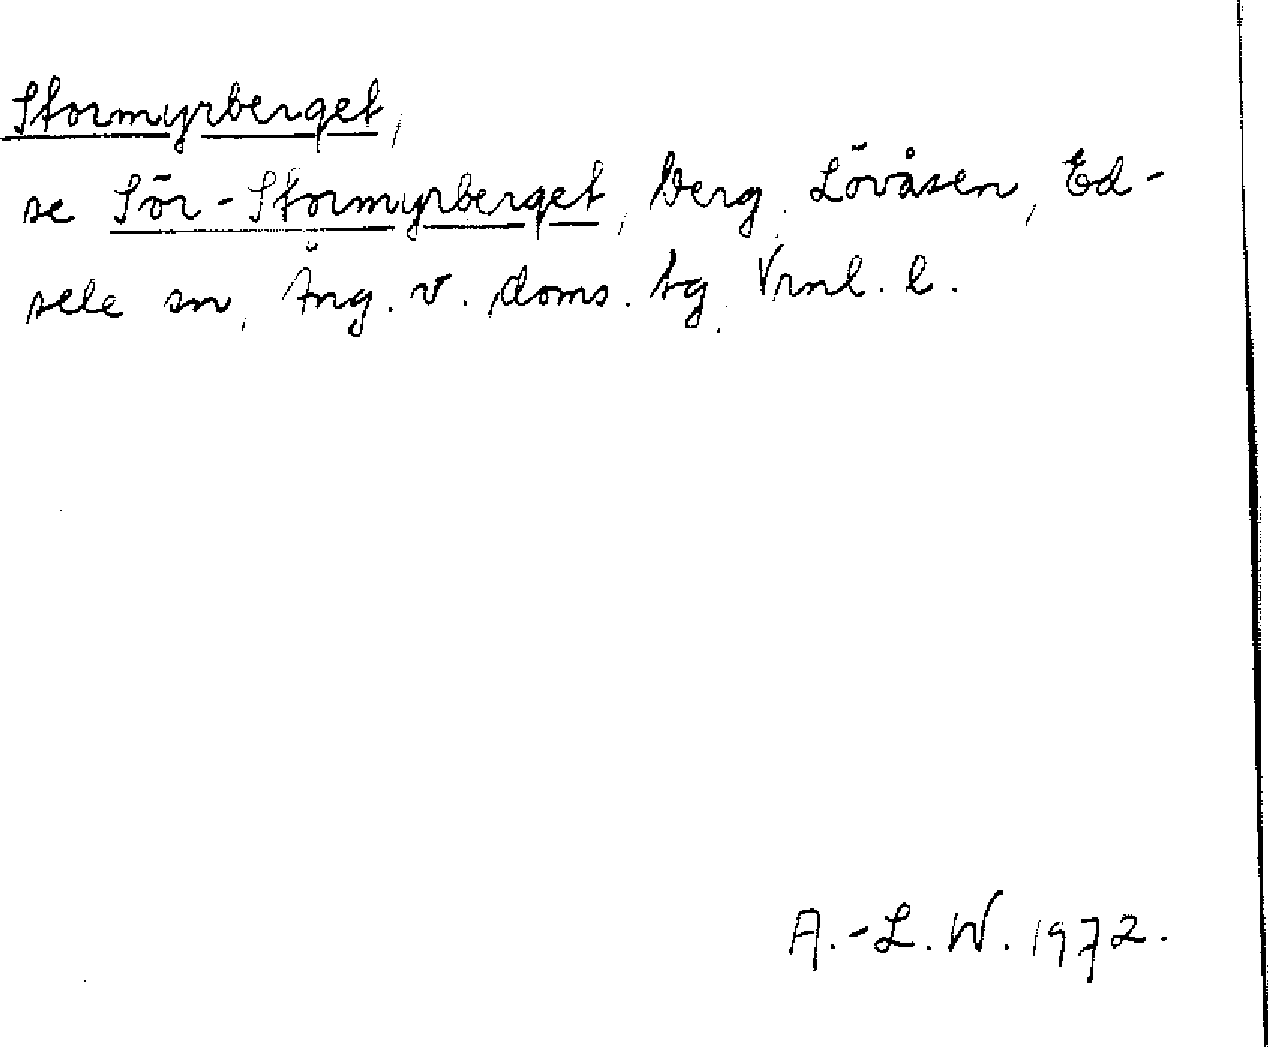 Stormyrberget,
se Sör-Stormyrberget, berg, Lövåsen, Ed-
sele sn, Äng. v. doms. tg, Vrnl. l.
A.-L. W. 1972.